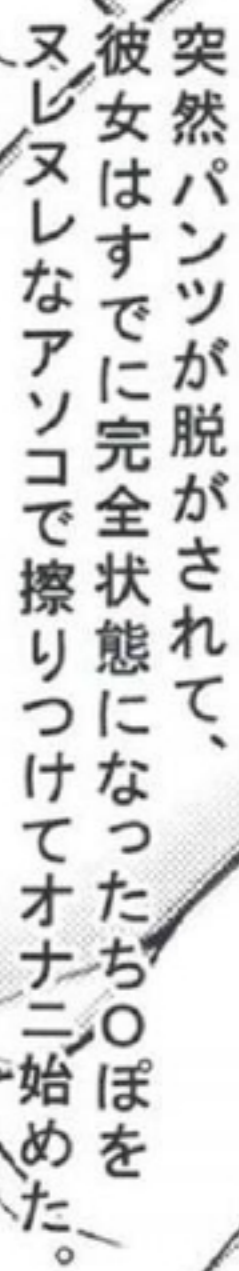 突然パンツが脱がされて、
彼女はすでに完全状態になったち〇ぽを
ヌレヌレなアソコで擦りつけてオナニ始めた。